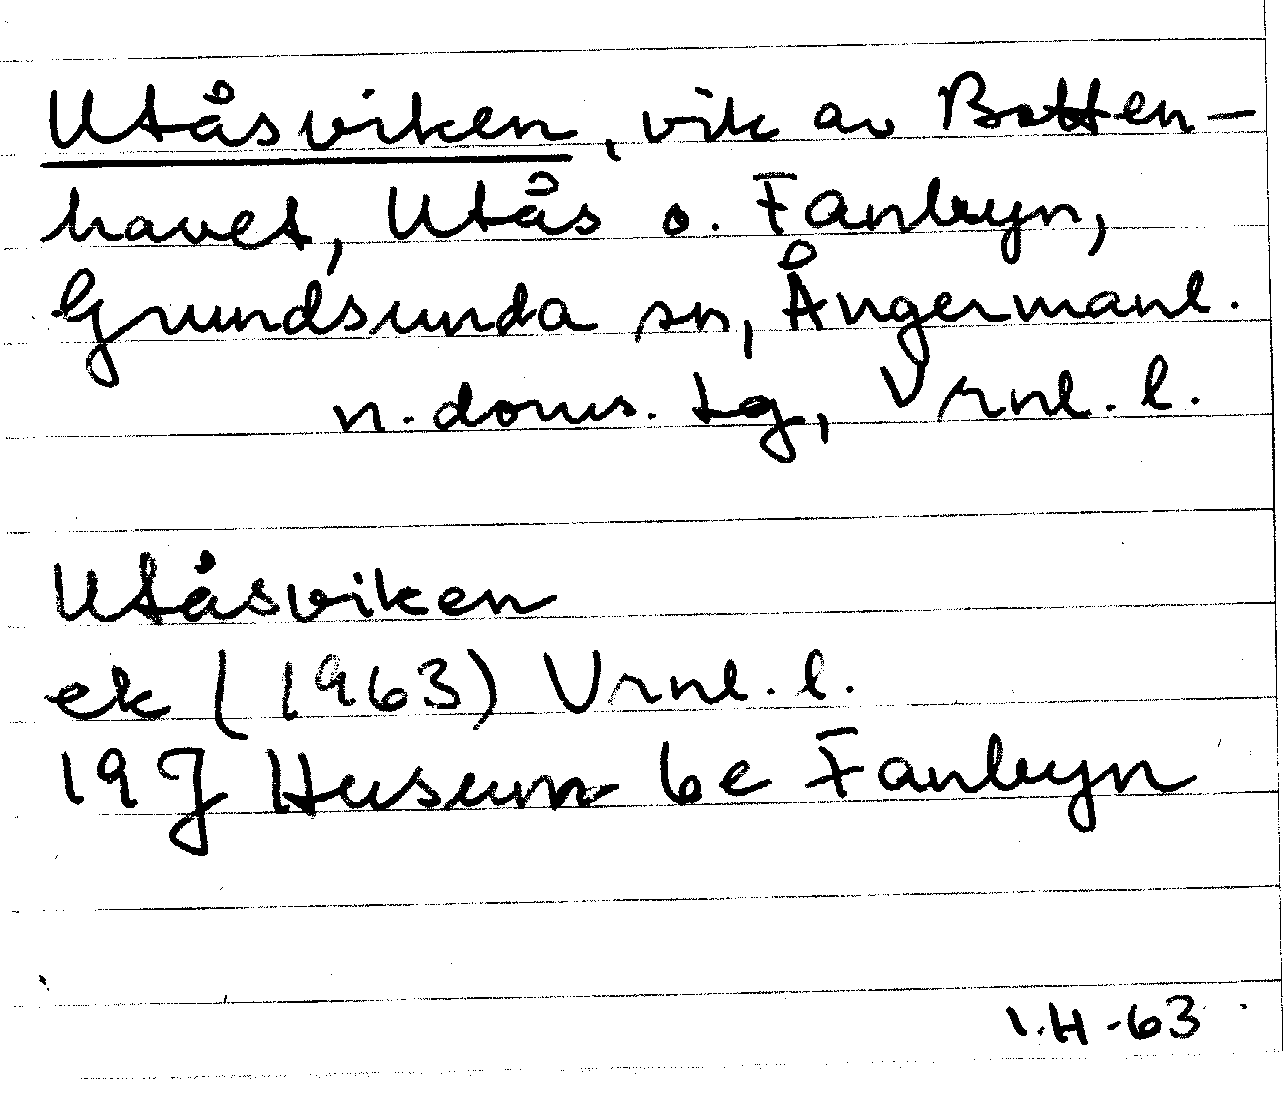 Utåsviken, vik av Botten-
havet, Utås o. Fanbyn,
Grundsunda sn, Ångermanl.
n. doms. tg, Vrnl. l.
Utåsviken
ek (1963) Vrnl. l.
19J Husum 6e Fanbyn
I.H -63